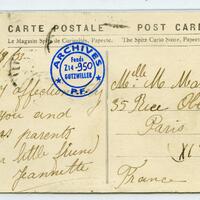 CARTE POSTALE
POST CARD
Le Magasin Spitz de Curiosités, Papeete.
The Spitz Curio Store, Papeete
ARCHIVES
Fonds
Z14-950
GUTZWILLER
P.F.
you and
parents
little friend
Jeannette
Mlle M. Ma
35 Rue
Paris
XI
France